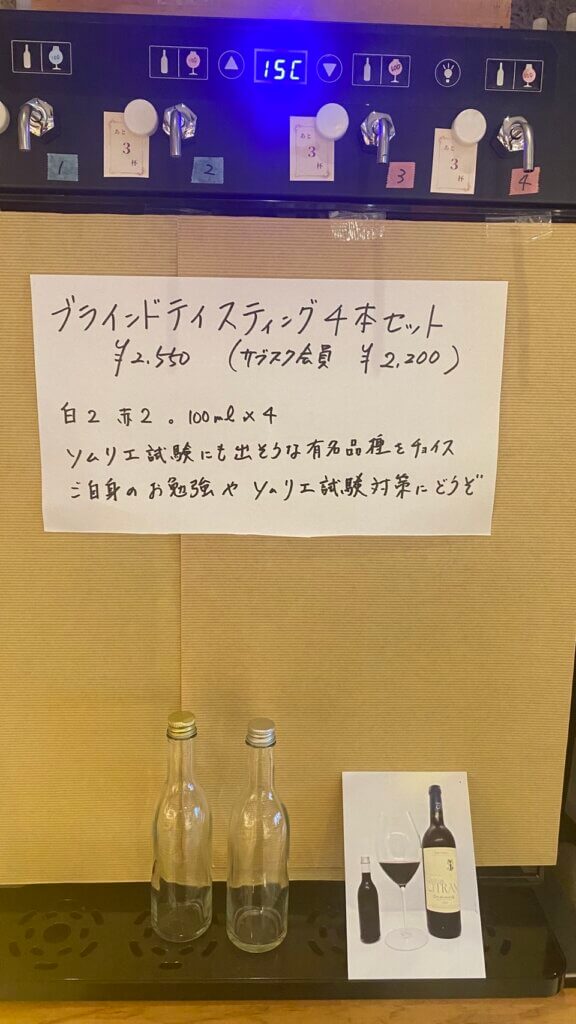 15C
あと
3
杯
あと
3
杯
あと
3
杯
1
2
3
4
ブラインドテイスティング4本セット
¥2.550 (サブスク会員 ¥2,200)
白2 赤2。100ml×4
ソムリエ試験にも出そうな有名品種をチョイス
ご自身のお勉強やソムリエ試験対策にどうぞ